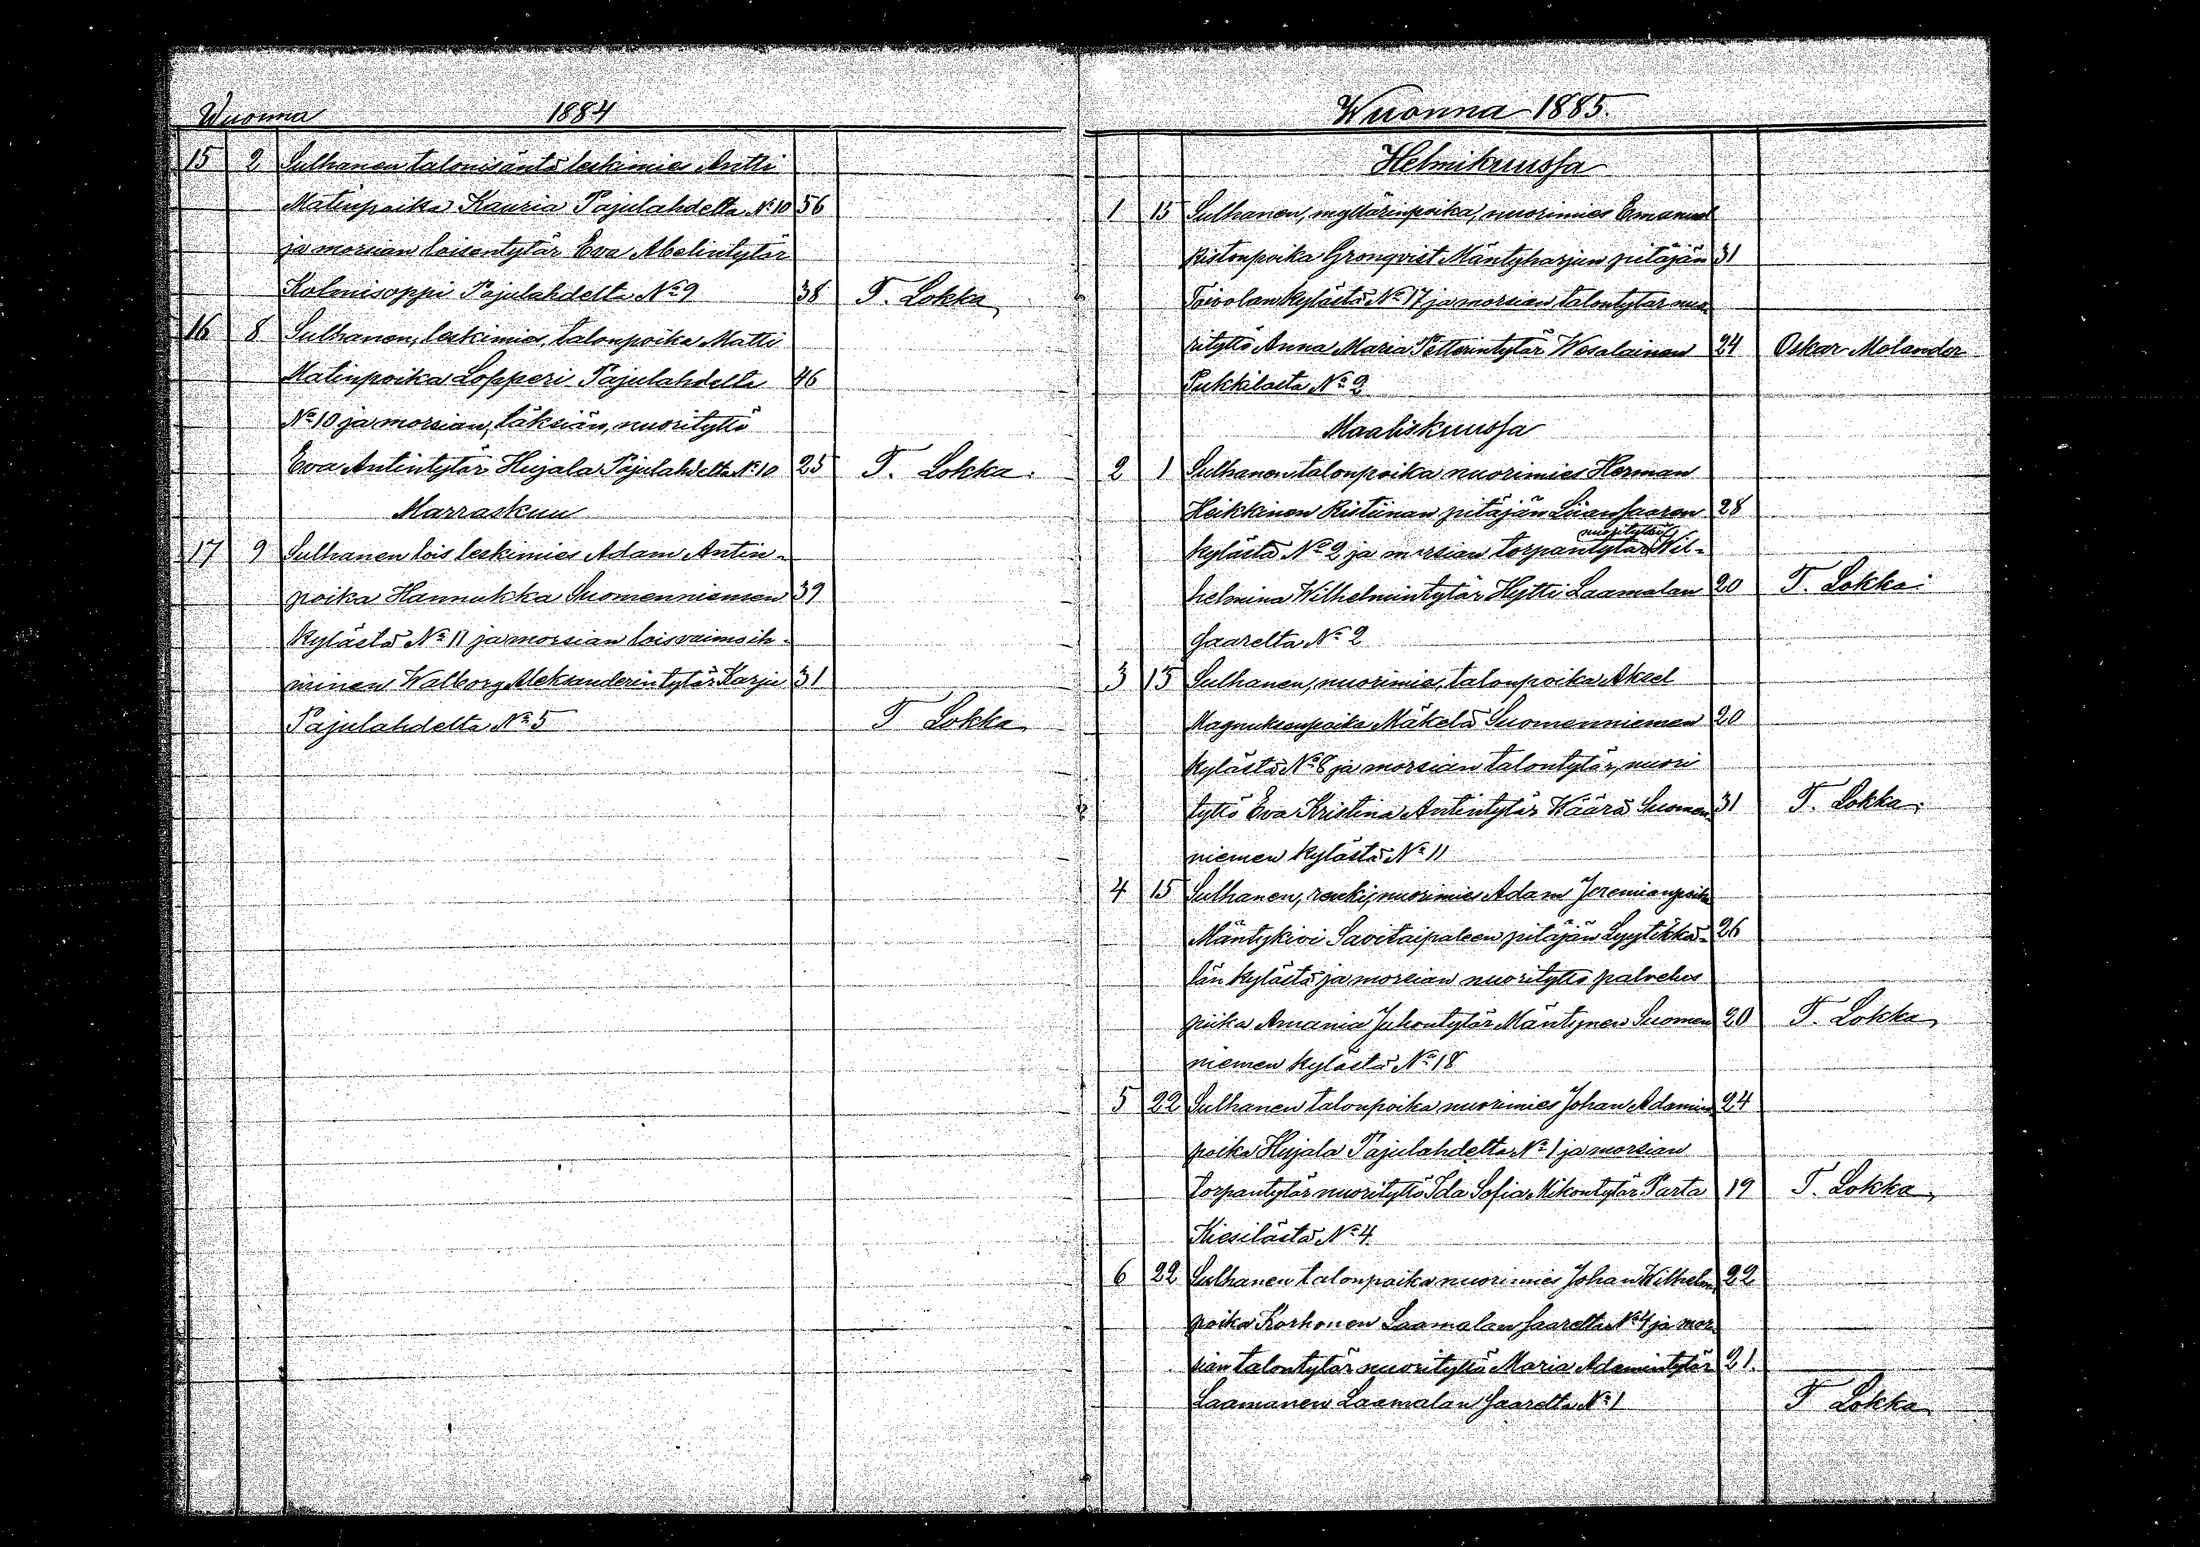 Wuonna 1884
15 2 Sulhanen talonisäntä leskimies Antti
Matinpoika Kauria Pajulahdelta No 10 56
ja morsian loisentytär Eva Abelintytär
Kolmisoppi Pajulahdelta No 9 38 T. Lokka
16 8 Sulhanen, leskimies, talonpoika Matti
Matinpoika Lopperi Pajulahdelta 46
No 10 ja morsian, läksiän, nuorityttö
Eva Antintytär Hujala Pajulahdelta No 10 25 T. Lokka.
Marraskuu
17 9 Sulhanen lois leskimies Adam Antin-
poika Hannukka Suomenniemen 39
kylästä No 11 ja morsian loisvaimoih-
minen Walborg Aleksanderintytär Karju 31
Pajulahdelta No 5 T Lokka
Wuonna 1885.
Helmikuussa
1 15 Sulhanen, myllärinpoika, nuorimies Emanuel
Gronqvist Mäntyharjun pitäjän 31
Toivolan kylästä No 17 ja morsian talontytär nuo-
rityttö Anna Maria Petterintytär Wesalainen 24 Oskar Molander
Pukkilasta No 2
Maaliskuussa
2 1 Sulhanen talonpoika nuorimies Herman
Heikkinen Ristiinan pitäjän 28
kylästä No 2 ja morsian torpantytär nuorityttö Wil-
helmina Wilhelmintytär Hytti Laamalan 20 T. Lokka.
saarelta No 2
3 15 Sulhanen, nuorimies, talonpoika Aksel
Magnuksenpoika Mäkelä Suomenniemen 20
kylästä No 8 ja morsian talontytär, nuori
tyttö Eva Kristina Antintytär Wäärä Suomen- 31 T. Lokka.
niemen kylästä No 11
4 15 Sulhanen, renki, nuorimies Adam Jeremianpoika
Mäntykivi Savitaipaleen pitäjän Lyytikkä- 26
län kylästä ja morsian nuorityttö palvelus
piika Amania Juhontytär Mäntynen Suomen 20 T. Lokka
niemen kylästä No 18
5 22 Sulhanen talonpoika nuorimies Johan Adamin 24
poika Hujala Pajulahdelta No 1 ja morsian
torpantytär nuorityttö Ida Sofia Mikontytär Parta 19 T. Lokka
Kiesilästä No 4
6 22 Sulhanen talonpoika nuorimies Johan Wilhelm 22
poika Korhonen Laamalan saarelta No 4 ja mor-
sian talontytär nuorityttö Maria Adamintytär 21.
Laamanen Laamalan saarelta No 1 T Lokka